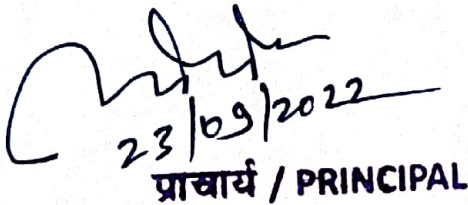 23/09/2022
प्राचार्य / PRINCIPAL